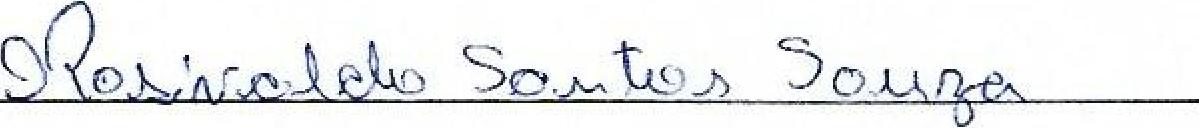 Rosivaldo Santos Souza